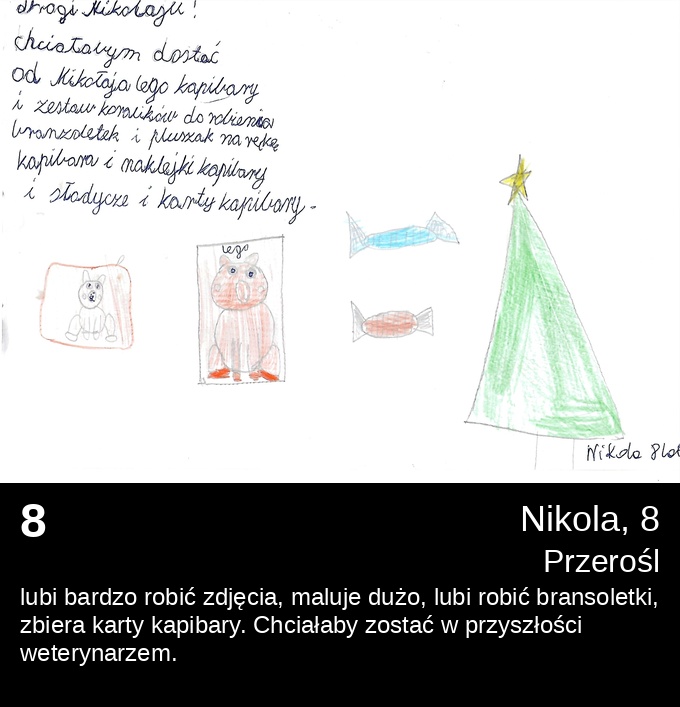 drogi Mikołaju!
chciałabym dostać
od Mikołaja lego kapibary
i zestaw koralików do robienia
branzoletek i pluszak na rękę
kapibara i naklejki kapibary
i słodycze i karty kapibary.
lego
Nikola 8 lat
8
Nikola, 8
Przerośl
lubi bardzo robić zdjęcia, maluje dużo, lubi robić bransoletki,
zbiera karty kapibary. Chciałaby zostać w przyszłości
weterynarzem.